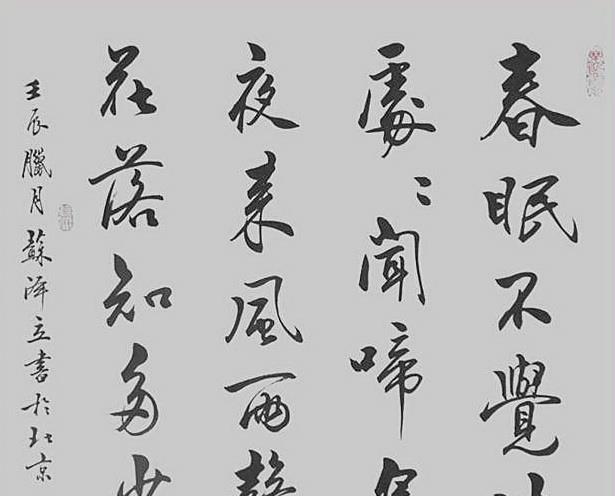 春眠不覺
處〻聞啼
夜来風雨聲
花落知多少
壬辰臘月蘇泽立書於北京